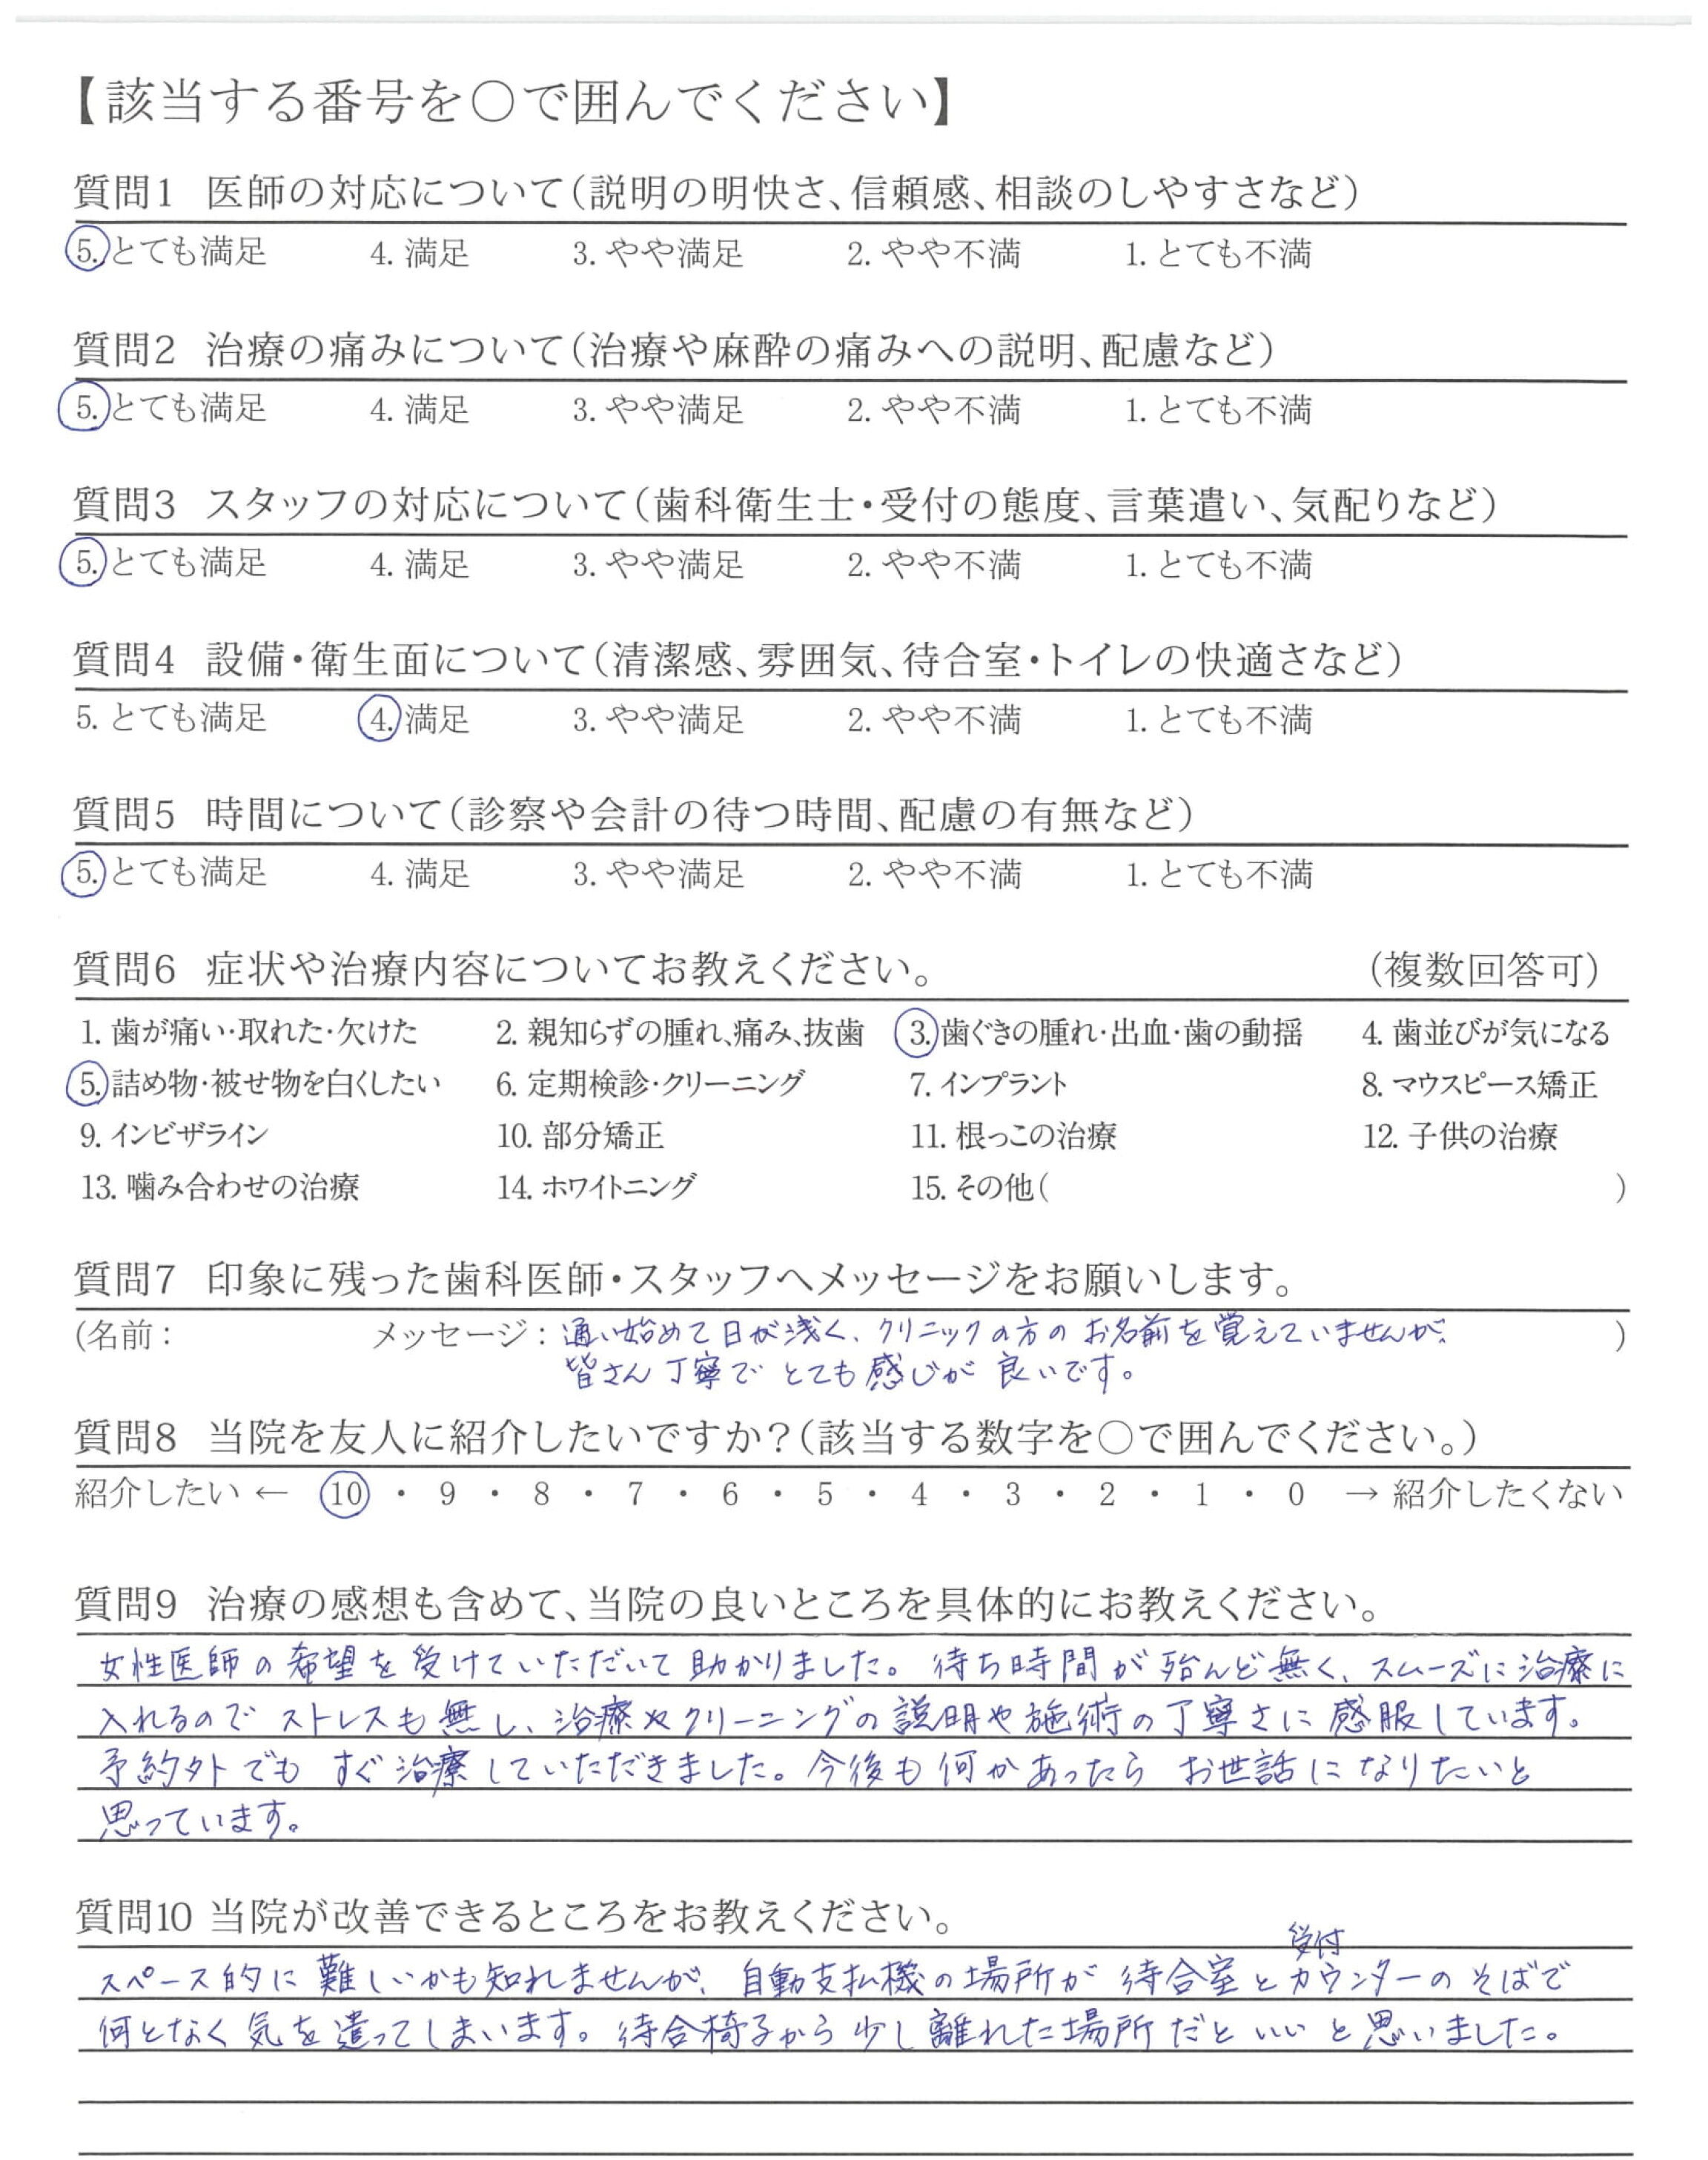 【該当する番号を○で囲んでください】
質問1 医師の対応について(説明の明快さ、信頼感、相談のしやすさなど)
5. とても満足 4. 満足 3. やや満足 2. やや不満 1. とても不満
質問2 治療の痛みについて(治療や麻酔の痛みへの説明、配慮など)
5. とても満足 4. 満足 3. やや満足 2. やや不満 1. とても不満
質問3 スタッフの対応について(歯科衛生士・受付の態度、言葉遣い、気配りなど)
5. とても満足 4. 満足 3. やや満足 2. やや不満 1. とても不満
質問4 設備・衛生面について(清潔感、雰囲気、待合室・トイレの快適さなど)
5. とても満足 4. 満足 3. やや満足 2. やや不満 1. とても不満
質問5 時間について(診察や会計の待つ時間、配慮の有無など)
5. とても満足 4. 満足 3. やや満足 2. やや不満 1. とても不満
質問6 症状や治療内容についてお教えください。 (複数回答可)
1. 歯が痛い・取れた・欠けた 2. 親知らずの腫れ、痛み、抜歯 3. 歯ぐきの腫れ・出血・歯の動揺 4. 歯並びが気になる
5. 詰め物・被せ物を白くしたい 6. 定期検診・クリーニング 7. インプラント 8. マウスピース矯正
9. インビザライン 10. 部分矯正 11. 根っこの治療 12. 子供の治療
13. 噛み合わせの治療 14. ホワイトニング 15. その他( )
質問7 印象に残った歯科医師・スタッフへメッセージをお願いします。
(名前: メッセージ: 通い始めて日が浅く、クリニックの方のお名前を覚えていませんが、 )
皆さん丁寧でとても感じが良いです。
質問8 当院を友人に紹介したいですか?(該当する数字を○で囲んでください。)
紹介したい ← 10 ・ 9 ・ 8 ・ 7 ・ 6 ・ 5 ・ 4 ・ 3 ・ 2 ・ 1 ・ 0 → 紹介したくない
質問9 治療の感想も含めて、当院の良いところを具体的にお教えください。
女性医師の希望を受けていただいて助かりました。待ち時間が殆んど無く、スムーズに治療に
入れるのでストレスも無し、治療やクリーニングの説明や施術の丁寧さに感服しています。
予約外でもすぐ治療していただきました。今後も何かあったらお世話になりたいと
思っています。
質問10 当院が改善できるところをお教えください。
受付
スペース的に難しいかも知れませんが、自動支払機の場所が待合室とカウンターのそばで
何となく気を遣ってしまいます。待合椅子から少し離れた場所だといいと思いました。